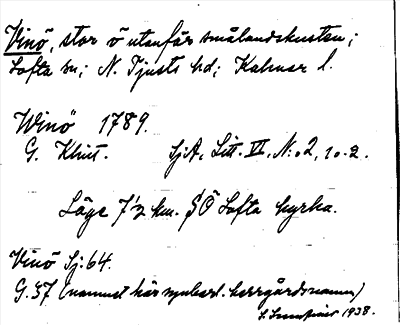 Vinö, stor ö utanför smålandskusten;
Lofta sn; N. Tjusts hd; Kalmar l.
Winö 1789.
G. Klint. SjA, Litt. VI, N:o 2, 10-2.
Läge 7½ km. SÖ Lofta kyrka.
Vinö Sj:64.
G.37 (namnet här uppbarl. herrgårdsnamn)
1938.